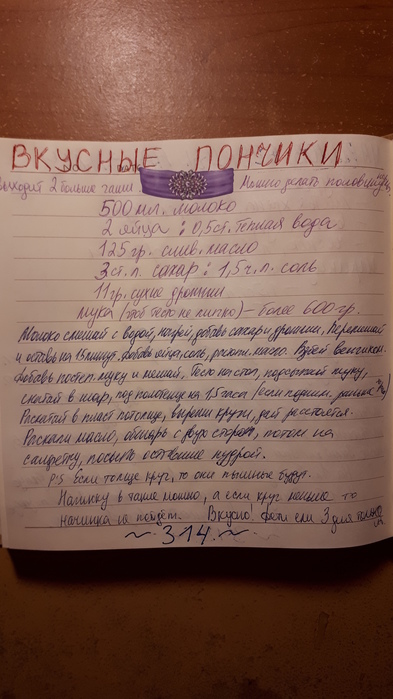 ВКУСНЫЕ ПОНЧИКИ:
Выходит 2 больше чаши Можно делать половину
500 мл. молоко
2 яйца : 0,5ст. теплая вода
125 гр. слив. масло
3 ст. л. сахар : 1,5 ч. л. соль
11гр. сухие дрожжи
мука (чтоб тесто не липко) – более 600гр.
Молоко смешай с водой, нагрей, добавь сахар и дрожжи, перемешай
и оставь на 15 минут. Добавь яйца, соль, раст. масло. Взбей венчиком.
Добавь постеп. муку и мешай, Тесто на стол, подсыпай муку,
скатай в шар, под полотенце на 1,5 часа (если подним. раньше
Раскатай в пласт потолще, вырежи круги, дай расстоятся.
Раскали масло, обжарь с двух сторон, потом на
салфетку, посыпь остывшие пудрой.
P.S Если толще круг, то они пышные будут.
Начинку в такие можно, а если круг меньше то
начинка не пойдет. Вкусно! 3 для
~ 314. ~